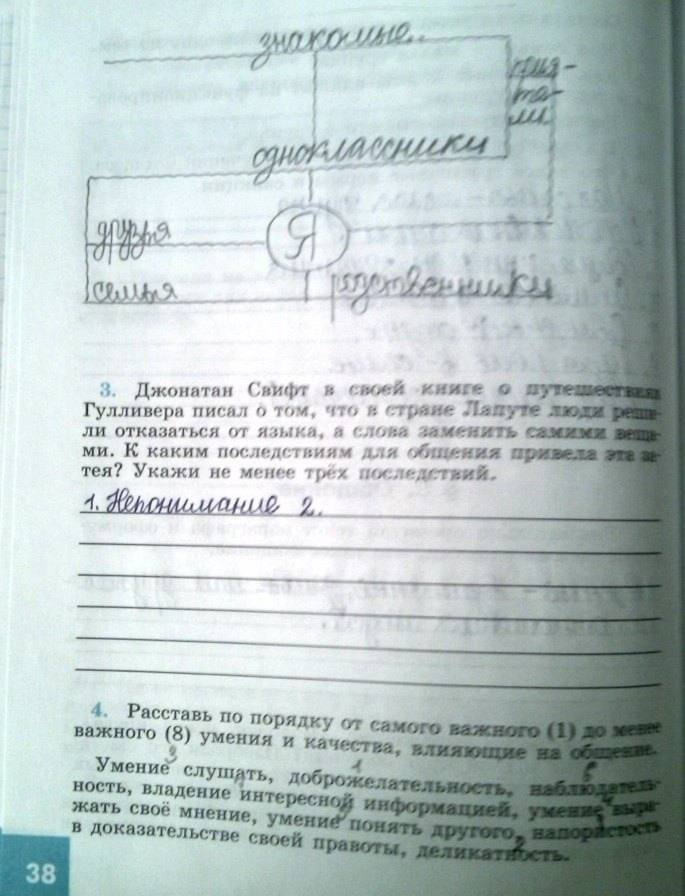 знакомые..
прия-
те-
ли
одноклассники
друзья
Я
семья
родственники
3. Джонатан Свифт в своей книге о путешествиях
Гулливера писал о том, что в стране Лапуте люди реши-
ли отказаться от языка, а слова заменить самими веща-
ми. К каким последствиям для общения привела эта за-
тея? Укажи не менее трёх последствий.
1. Непонимание 2.
4. Расставь по порядку от самого важного (1) до менее
важного (8) умения и качества, влияющие на общение.
Умение слушать, доброжелательность, наблюдатель-
ность, владение интересной информацией, умение выра-
жать своё мнение, умение понять другого, напористость
в доказательстве своей правоты, деликатность.
38